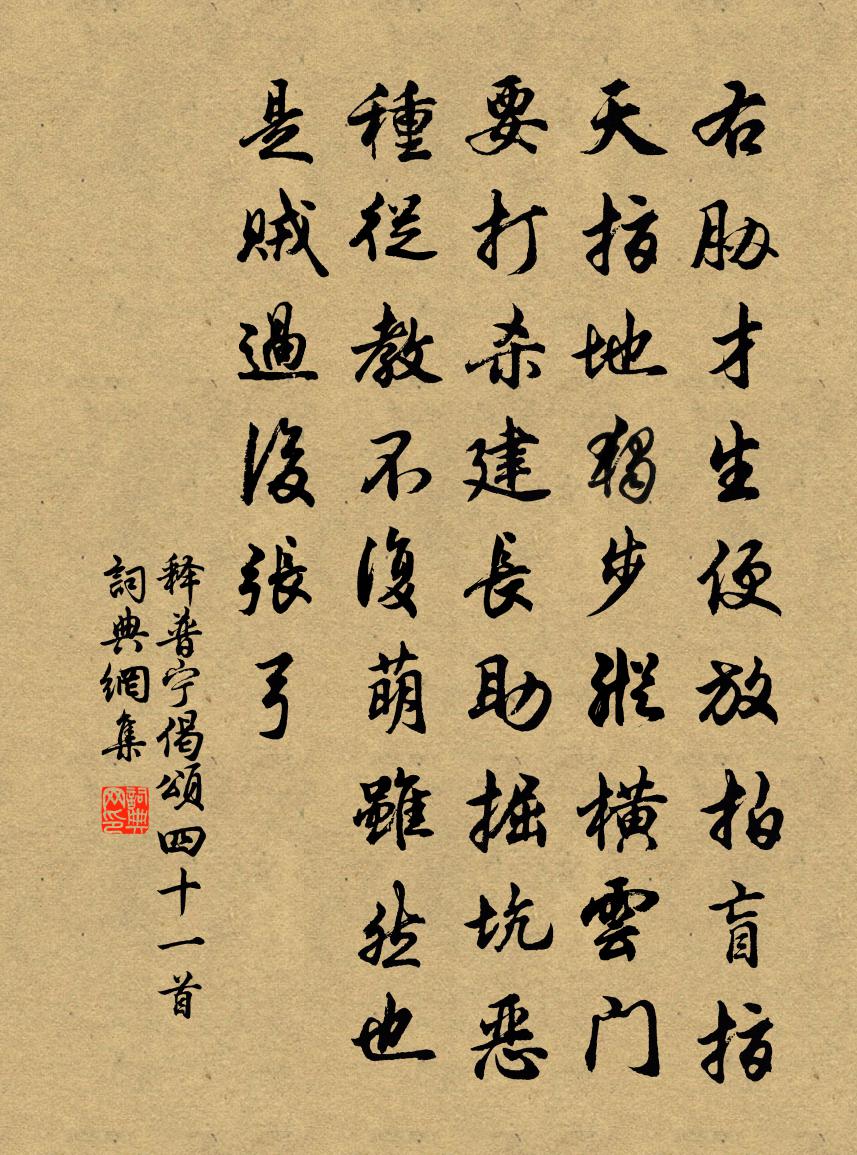 右胁才生便放拍盲指
天指地獨步縱橫雲門
要打杀建長助掘坑恶
種從教不復萌雖然也
是贼過後張弓
释普宁偈頌四十一首
詞典網集
詞典网印